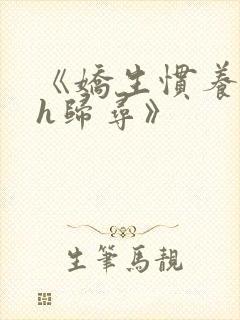 《嬌生慣養
h歸尋》
生筆馬靚